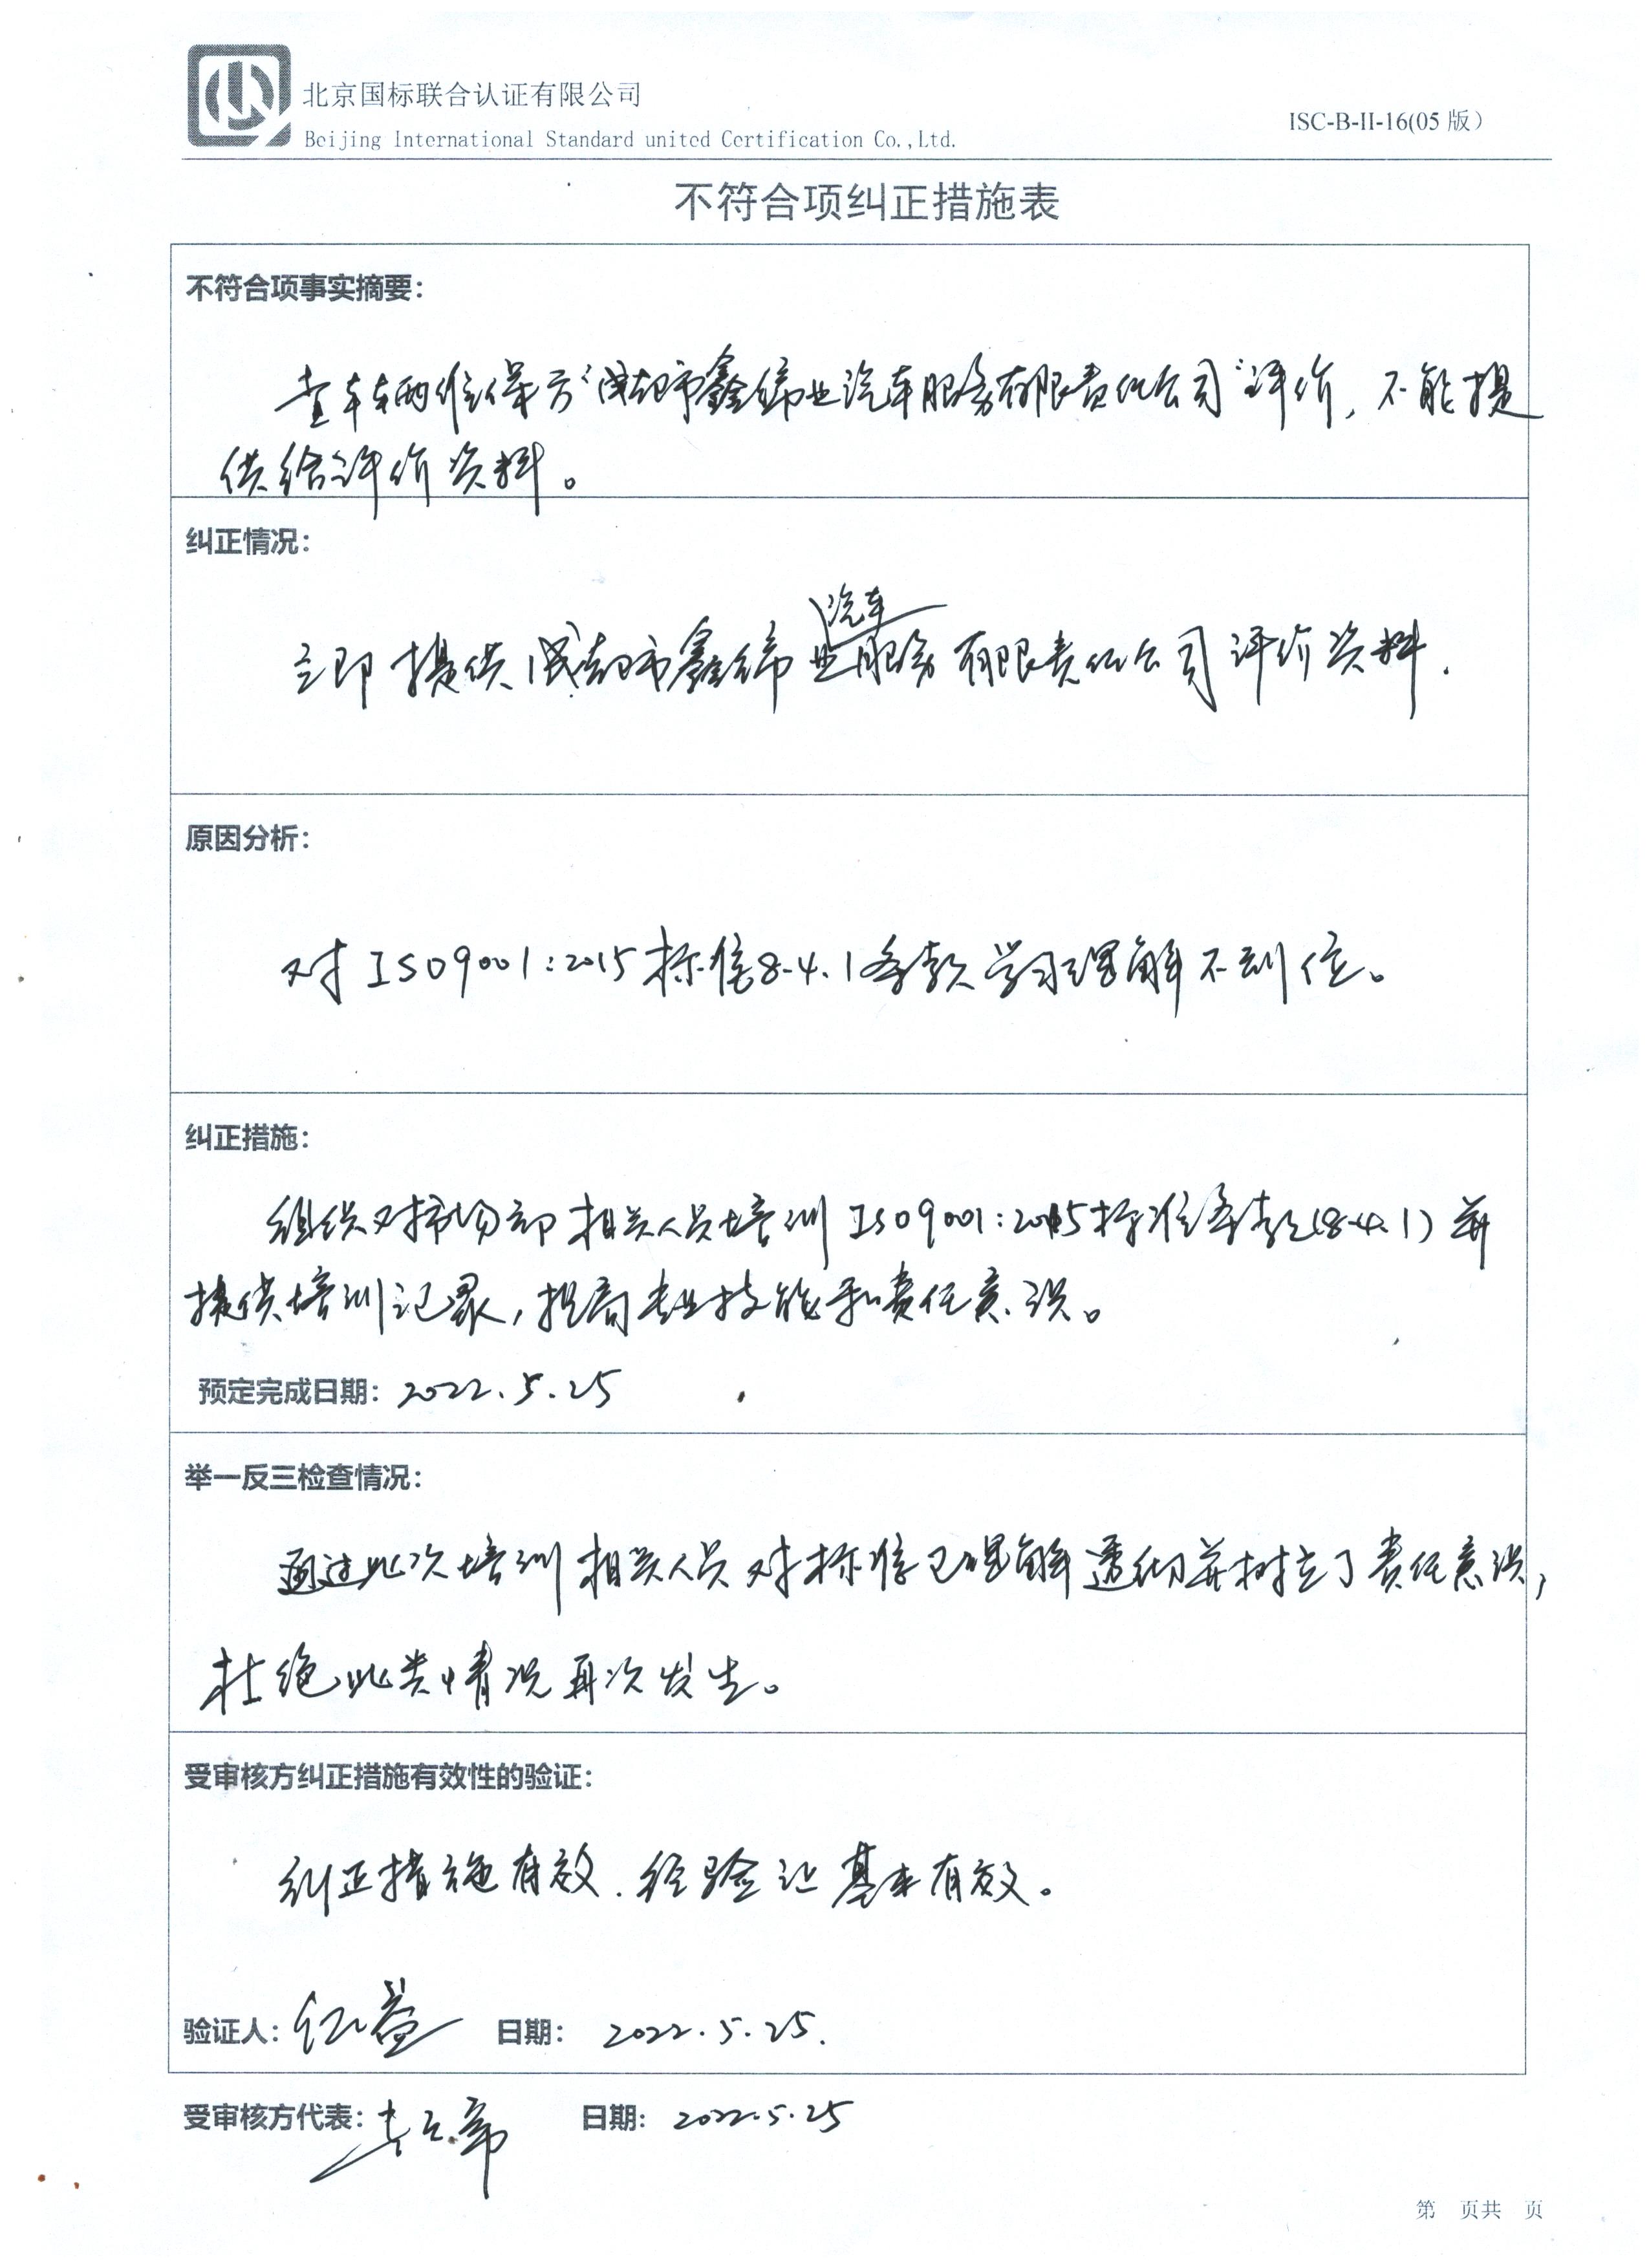 北京国标联合认证有限公司
Beijing International Standard united Certification Co.,Ltd.
ISC-B-II-16(05 版)
不符合项纠正措施表
不符合项事实摘要:
查车辆维保方“成都市鑫缔业汽车服务有限责任公司”评价,不能提
供给评价资料。
纠正情况:
汽车
立即提供成都市鑫缔业服务有限责任公司评价资料.
原因分析:
对ISO9001:2015标准8.4.1条款学习理解不到位。
纠正措施:
组织对市场部相关人员培训ISO9001:2015标准条款(8.4.1)并
提供培训记录,提高专业技能和责任意识。
预定完成日期: 2022.5.25
举一反三检查情况:
通过此次培训相关人员对标准已理解透彻并树立了责任意识,
杜绝此类情况再次发生。
受审核方纠正措施有效性的验证:
纠正措施有效.经验证基本有效。
验证人: 日期: 2022.5.25.
受审核方代表: 日期: 2022.5.25
第 页共 页